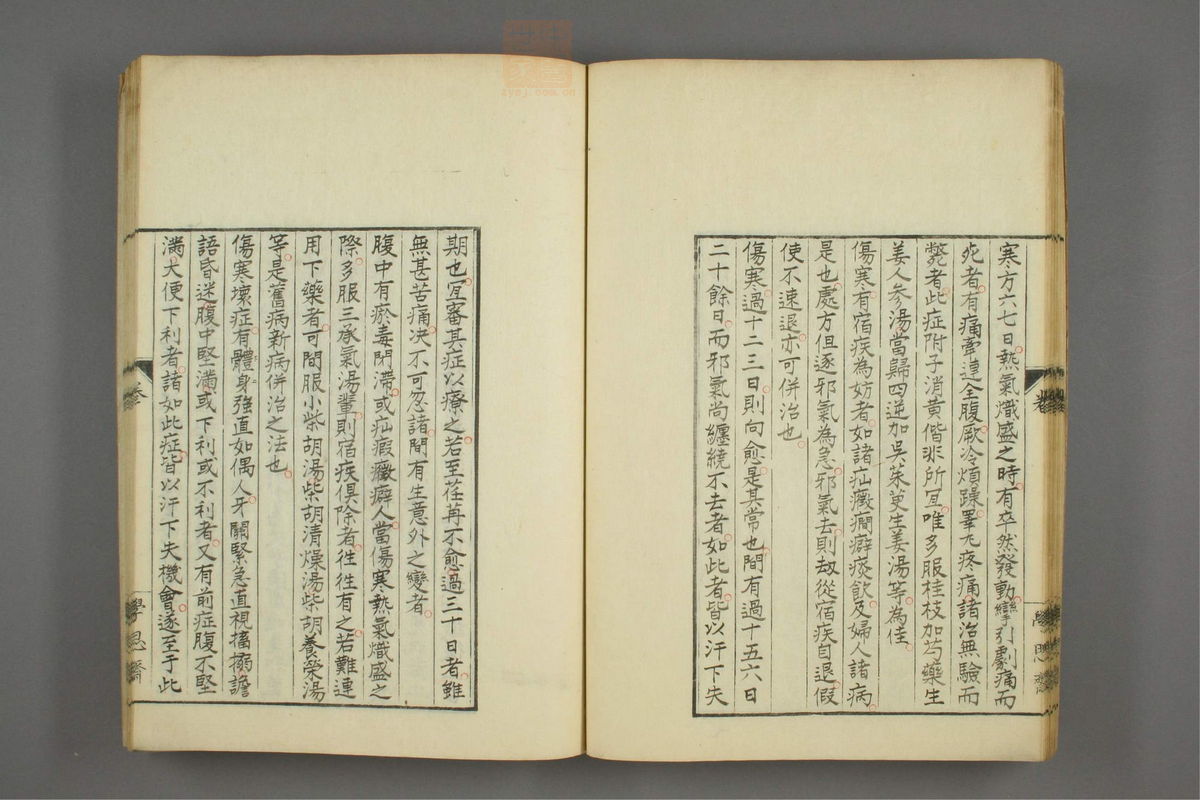 寒方六七日熱氣熾盛之時有卒然發動攣引劇痛而
死者有痛牽連全腹厥冷煩躁睪丸疼痛諸治無驗而
斃者此症附子消黄偕非所宜唯多服桂枝加芍藥生
姜人參湯當歸四逆加吳茱萸生姜湯等為佳
傷寒有宿疾為妨者如諸疝癥癇癖痰飲及婦人諸病
是也處方但逐邪氣為急邪氣去則劫從宿疾自退假
使不速退亦可併治也
傷寒過十二三日則向愈是其常也間有過十五六日
二十餘日而邪氣尚纏繞不去者如此者皆以汗下失
期也宜審其症以療之若至荏苒不愈過三十日者雖
無甚苦痛决不可忽諸間有生意外之變者
腹中有瘀毒閉滯或疝瘕癥癖人當傷寒熱氣熾盛之
際多服三承氣湯輩則宿疾俱除者徃徃有之若難連
用下藥者可間服小柴胡湯柴胡清燥湯柴胡養榮湯
等是舊病新病併治之法也
傷寒壞症有體身強直如偶人牙關緊急直視搐搦譫
語昏迷腹中堅滿或下利或不利者又有前症腹不堅
滿大便下利者諸如此症皆以汗下失機會遂至于此
學思齋
zysj.com.cn